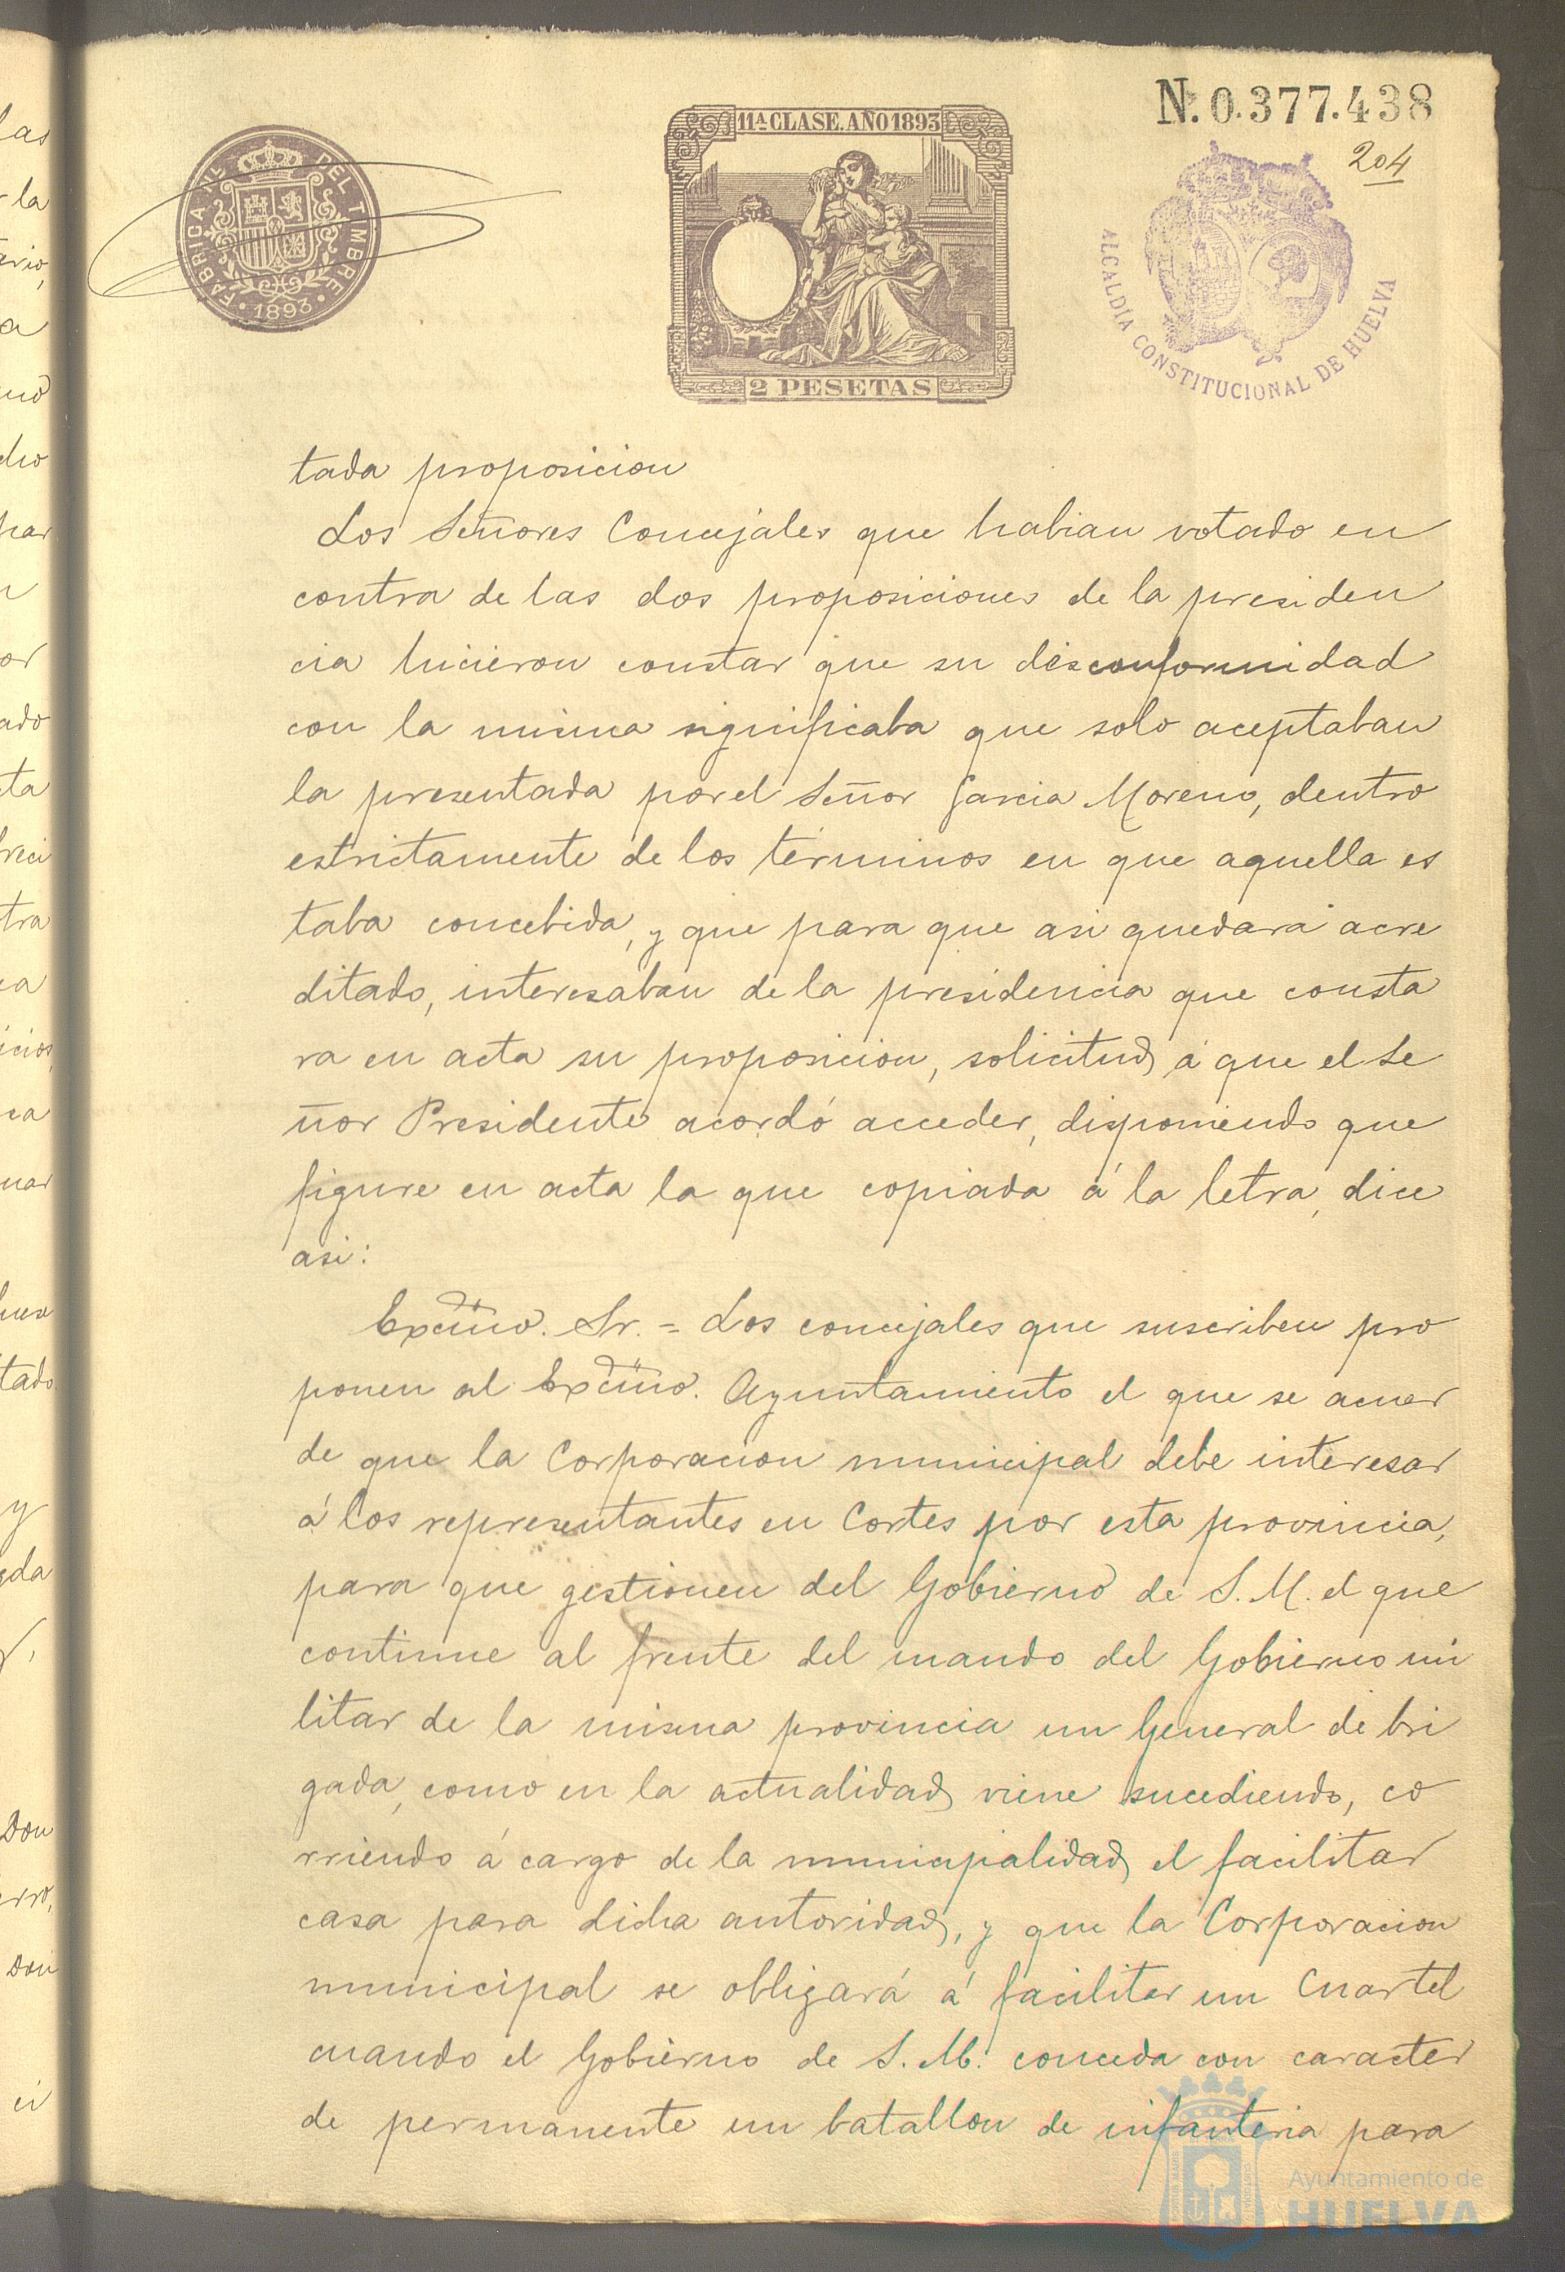 N. 0.377.438
204
11ª CLASE. AÑO 1893
2 PESETAS
FABRICA NL DEL TIMBRE
· 1893 ·
ALCALDÍA CONSTITUCIONAL DE HUELVA
tada proposicion
Los Señores Concejales que habian votado en
contra de las dos proposiciones de la presiden
cia hicieron constar que su disconformidad
con la misma significaba que solo aceptaban
la presentada por el Señor Garcia Moreno, dentro
estrictamente de los términos en que aquella es
taba concebida, y que para que asi quedara acre
ditado, interesaban de la presidencia que consta
ra en acta su proposicion, solicitud á que el Se
ñor Presidente acordó acceder, disponiendo que
figure en acta la que copiada á la letra, dice
asi:
Excmo. Sr. = Los concejales que suscriben pro
ponen al Excmo. Ayuntamiento el que se acuer
de que la Corporacion municipal debe interesar
á los representantes en Cortes por esta provincia,
para que gestionen del Gobierno de S. M. el que
continue al frente del mando del Gobierno mi
litar de la misma provincia un General de bri
gada, como en la actualidad viene sucediendo, co
rriendo á cargo de la municipalidad el facilitar
casa para dicha autoridad, y que la Corporacion
municipal se obligará á facilitar un Cuartel
cuando el Gobierno de S. M. conceda con caracter
de permanente un batallon de infanteria para
Ayuntamiento de
HUELVA